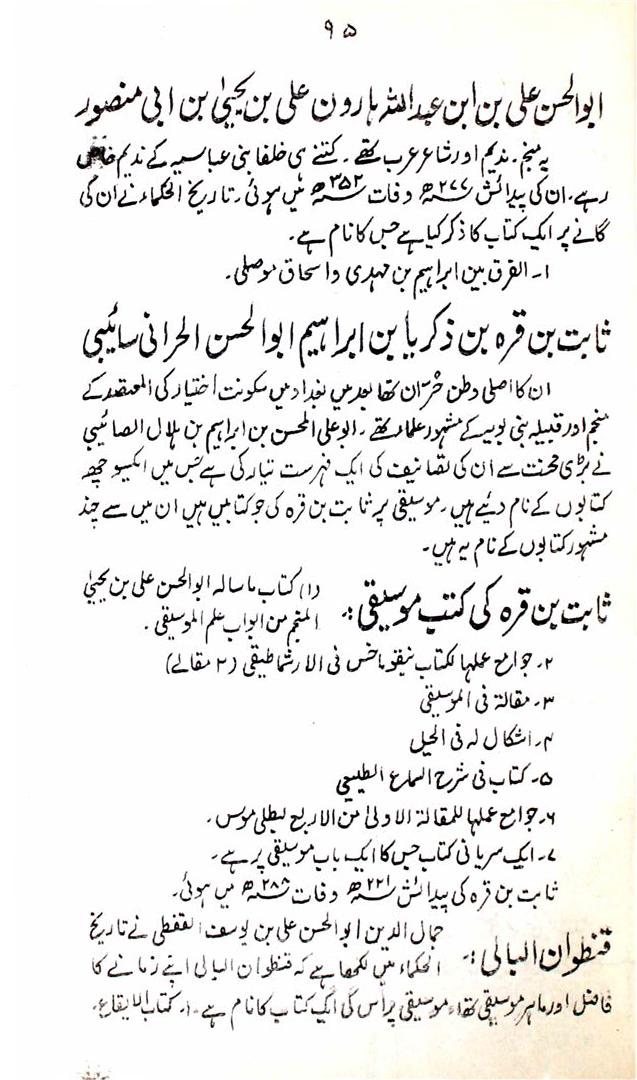 ۹۵
ابو الحسن علی بن ابن عبداللہ ہارون علی بن یحییٰ بن ابی منصور
یہ منجم۔ ندیم اور شاعر عرب تھے۔ کتنے ہی خلفا بنی عباسیہ کے ندیم خاص
رہے۔ ان کی پیدائش ۲۷۷ھ وفات ۳۵۲ھ میں ہوئی۔ تاریخ الحکماء نے ان کی
گانے پر ایک کتاب کا ذکر کیا ہے جس کا نام ہے۔
۱۔ الفرق بین ابراہیم بن مہدی و اسحاق موصلی۔
ثابت بن قرہ بن ذکریا بن ابراہیم ابو الحسن الحرانی سائیبی
ان کا اصلی وطن حرّان تھا بعد میں بغداد میں سکونت اختیار کی المعتضد کے
منجم اور قبیلہ بنی بویہ کے مشہور علماء تھے۔ ابو علی المحسن بن ابراہیم بن ہلال الصائیبی
نے بڑی محنت سے ان کی تصانیف کی ایک فہرست تیار کی ہے جس میں ایکسو چھ
کتابوں کے نام دیئے ہیں۔ موسیقی پر ثابت بن قرہ کی جو کتابیں ہیں ان میں سے چند
مشہور کتابوں کے نام یہ ہیں۔
ثابت بن قرہ کی کتب موسیقی:۔ (۱) کتاب ما سالہ ابو الحسن علی بن یحییٰ
المنجم من ابواب علم الموسیقی۔
۲۔ جوامع عملہا لکتاب نیقوماخس فی الارشماطیقی (۲ مقالے)
۳۔ مقالۃ فی الموسیقی
۴۔ اشکال لہ فی الحیل
۵۔ کتاب فی شرح السماع الطبیعی
۶۔ جوامع عملہا للمقالۃ الاولیٰ من الاربع لبطلی موس۔
۷۔ ایک سریانی کتاب جس کا ایک باب موسیقی پر ہے۔
ثابت بن قرہ کی پیدائش ۲۲۱ھ وفات ۲۸۸ھ میں ہوئی۔
قنطوان البالی:۔ جمال الدین ابو الحسن علی بن یوسف القفطی نے تاریخ
الحکماء میں لکھا ہے کہ قنطوان البالی اپنے زمانے کا
فاضل اور ماہر موسیقی تھا۔ موسیقی پر اس کی ایک کتاب کا نام ہے۔ ۱۔ کتاب الایقاع۔